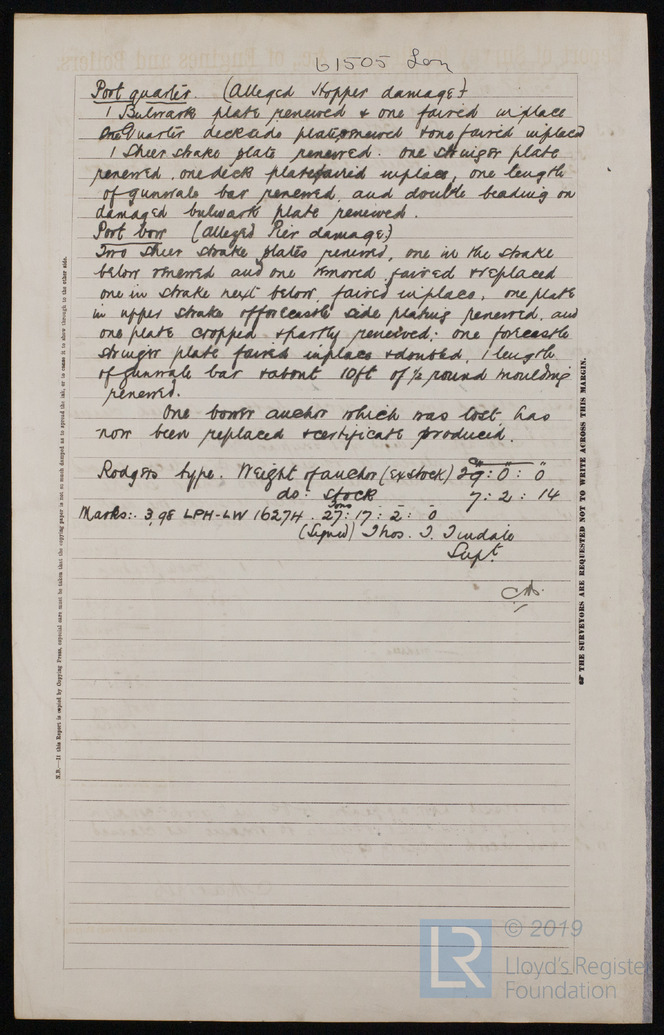 61505 Lon
Port quarter. (Alleged Hopper damage)
1 Bulwark plate renewed & one faired in place
One Quarter deck side plate renewed & one faired in place
1 Sheer strake plate renewed. one stringer plate
renewed, one deck plate faired in place, one length
of gunwale bar renewed, and double beading on
damaged bulwark plate renewed.
Port bow (Alleged Pier damage)
Two sheer strake plates renewed, one in the strake
below renewed and one removed faired & replaced
one in strake next below, faired in place. one plate
in upper strake of forecastle side plating renewed, and
one plate cropped & partly renewed: one forecastle
stringer plate faired in place & doubled, 1 length
of gunwale bar & about 10ft of ½ round moulding
renewed.
One bower anchor which was lost has
now been replaced & certificate produced.
Rodgers type. Weight of anchor (Ex Stock) 29: 0: 0
do. Stock 7: 2: 14
Marks:. 3,98 LPH-LW 16274. Tons 27: 17: 2: 0
(Signed) Thos. T. Tindale
Supt.
N.B.—If this Report is copied by Copying Press, especial care must be taken that the copying paper is not so much damped as to spread the ink, or to cause it to show through to the other side.
OF THE SURVEYORS ARE REQUESTED NOT TO WRITE ACROSS THIS MARGIN.
LR
© 2019
Lloyd's Register
Foundation